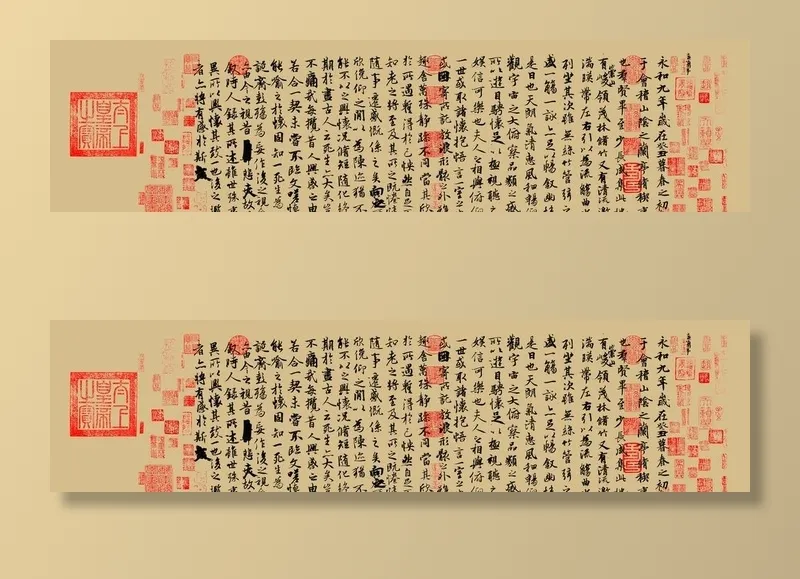 永和九年歲在癸丑暮春之初
于會稽山陰之蘭亭脩稧事
也群賢畢至少長咸集此地
有崇山峻領茂林脩竹又有清流激
湍暎帶左右引以為流觴曲水
列坐其次雖無絲竹管弦之
盛一觴一詠亦足以暢敘幽情
是日也天朗氣清惠風和暢仰
觀宇宙之大俯察品類之盛
所以遊目騁懷足以極視聽之
娛信可樂也夫人之相與俯仰
一世或取諸懷抱悟言一室之
或因寄所託放浪形骸之外雖
趣舍萬殊靜躁不同當其欣
於所遇蹔得於己怏然自足
知老之將至及其所之既惓情
隨事遷感慨係之矣向之
欣俛仰之閒以為陳跡猶不
能不以之興懷況脩短隨化終
期於盡古人云死生亦大矣豈
不痛哉每攬昔人興感之由
若合一契未嘗不臨文嗟悼
能喻之於懷固知一死生為
誕齊彭殤為妄作後之視今
亦由今之視昔悲夫故
敘時人錄其所述雖世殊事
異所以興懷其致一也後之攬
者亦將有感於斯
太上皇帝之寶
永和九年歲在癸丑暮春之初
于會稽山陰之蘭亭脩稧事
也群賢畢至少長咸集此地
有崇山峻領茂林脩竹又有清流激
湍暎帶左右引以為流觴曲水
列坐其次雖無絲竹管弦之
盛一觴一詠亦足以暢敘幽情
是日也天朗氣清惠風和暢仰
觀宇宙之大俯察品類之盛
所以遊目騁懷足以極視聽之
娛信可樂也夫人之相與俯仰
一世或取諸懷抱悟言一室之
或因寄所託放浪形骸之外雖
趣舍萬殊靜躁不同當其欣
於所遇蹔得於己怏然自足
知老之將至及其所之既惓情
隨事遷感慨係之矣向之
欣俛仰之閒以為陳跡猶不
能不以之興懷況脩短隨化終
期於盡古人云死生亦大矣豈
不痛哉每攬昔人興感之由
若合一契未嘗不臨文嗟悼
能喻之於懷固知一死生為
誕齊彭殤為妄作後之視今
亦由今之視昔悲夫故
敘時人錄其所述雖世殊事
異所以興懷其致一也後之攬
者亦將有感於斯
太上皇帝之寶